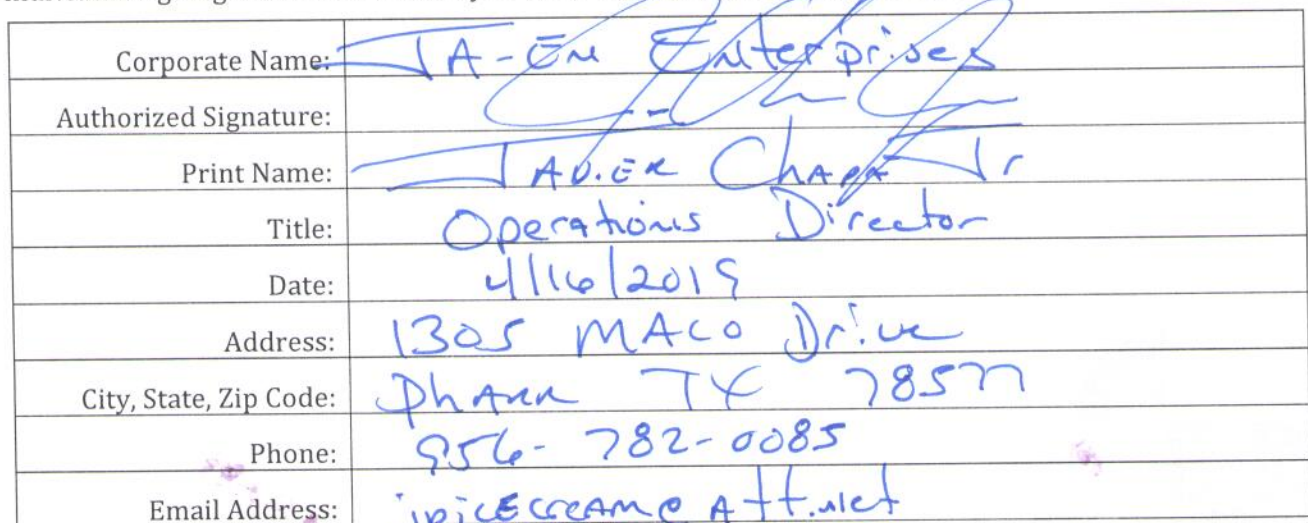 Corporate Name: JA-EM Enterprises
Authorized Signature:
Print Name: JAVIER ChAPA Jr
Title: Operations Director
Date: 4/16/2019
Address: 1305 MACO Drive
City, State, Zip Code: PhARR TX 78577
Phone: 956-782-0085
Email Address: